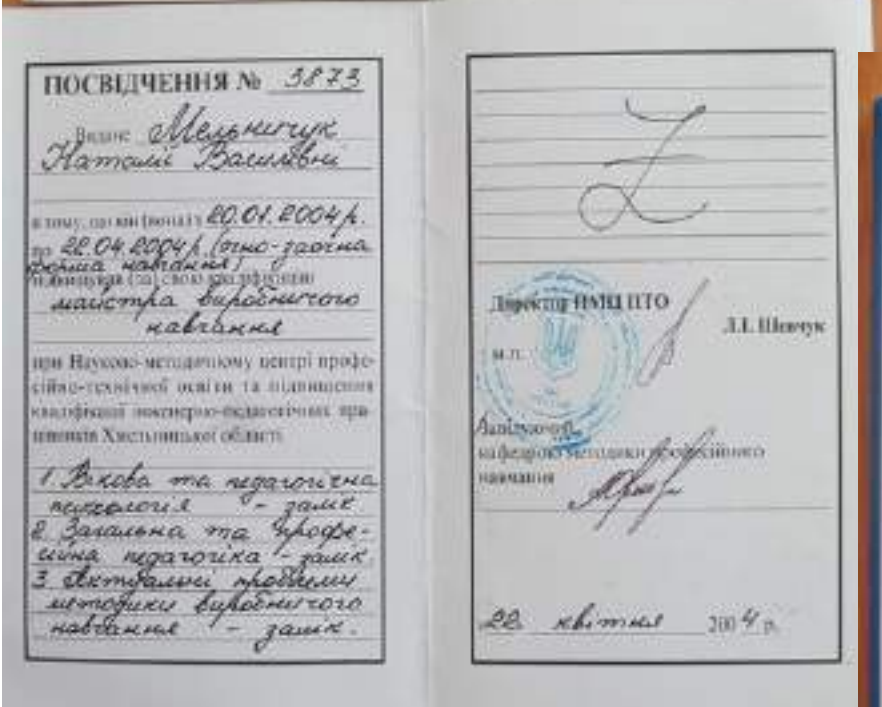 ПОСВІДЧЕННЯ № 3873
Видане Мельничук
Наталії Василівні
в тому, що він (вона) з 20.01.2004р.
по 22.04.2004р. (очно-заочна
форма навчання)
підвищував (ла) свою кваліфікацію
майстра виробничого
навчання
при Науково-методичному центрі профе-
сійно-технічної освіти та підвищення
кваліфікації інженерно-педагогічних пра-
цівників Хмельницької області
1. Вікова та педагогічна
психологія - залік
2. Загальна та профе-
сійна педагогіка - залік.
3. Актуальні проблеми
методики виробничого
навчання - залік.
Z
Директор НМЦ ПТО
Л.І. Шевчук
М.П.
Завідуючий
кафедрою методики професійного
навчання
22 квітня 2004 р.